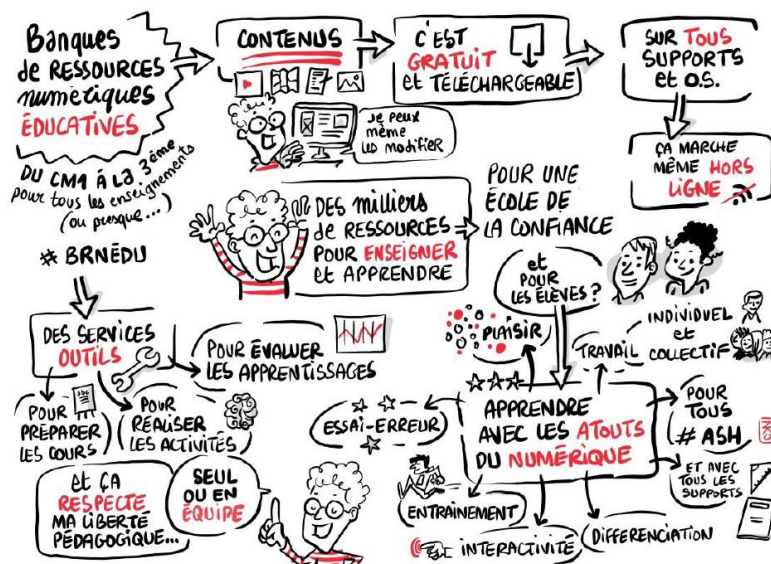 Banques
de RESSOURCES
numériques
ÉDUCATIVES
DU CM1 À LA 3ème
pour tous les enseignements
(ou presque...)
# BRNÉDU
CONTENUS
Je peux
même
les modifier
C'EST
GRATUIT
et TÉLÉCHARGEABLE
SUR TOUS
SUPPORTS
et O.S.
ÇA MARCHE
MÊME HORS
LIGNE
DES milliers
de RESSOURCES
POUR ENSEIGNER
et APPRENDRE
POUR UNE
ÉCOLE DE
LA CONFIANCE
et
POUR
LES ÉLÈVES ?
DES SERVICES
OUTILS
POUR ÉVALUER
LES APPRENTISSAGES
POUR
PRÉPARER
LES COURS
POUR
RÉALISER
LES ACTIVITÉS
et ÇA
RESPECTE
MA LIBERTÉ
PÉDAGOGIQUE...
SEUL
OU EN
ÉQUIPE
PLAISIR
TRAVAIL
INDIVIDUEL
et
COLLECTIF
ESSAI-ERREUR
APPRENDRE
AVEC LES ATOUTS
DU NUMÉRIQUE
POUR
TOUS
# ASH
ET AVEC
TOUS LES
SUPPORTS
ENTRAÎNEMENT
INTERACTIVITÉ
DIFFERENCIATION